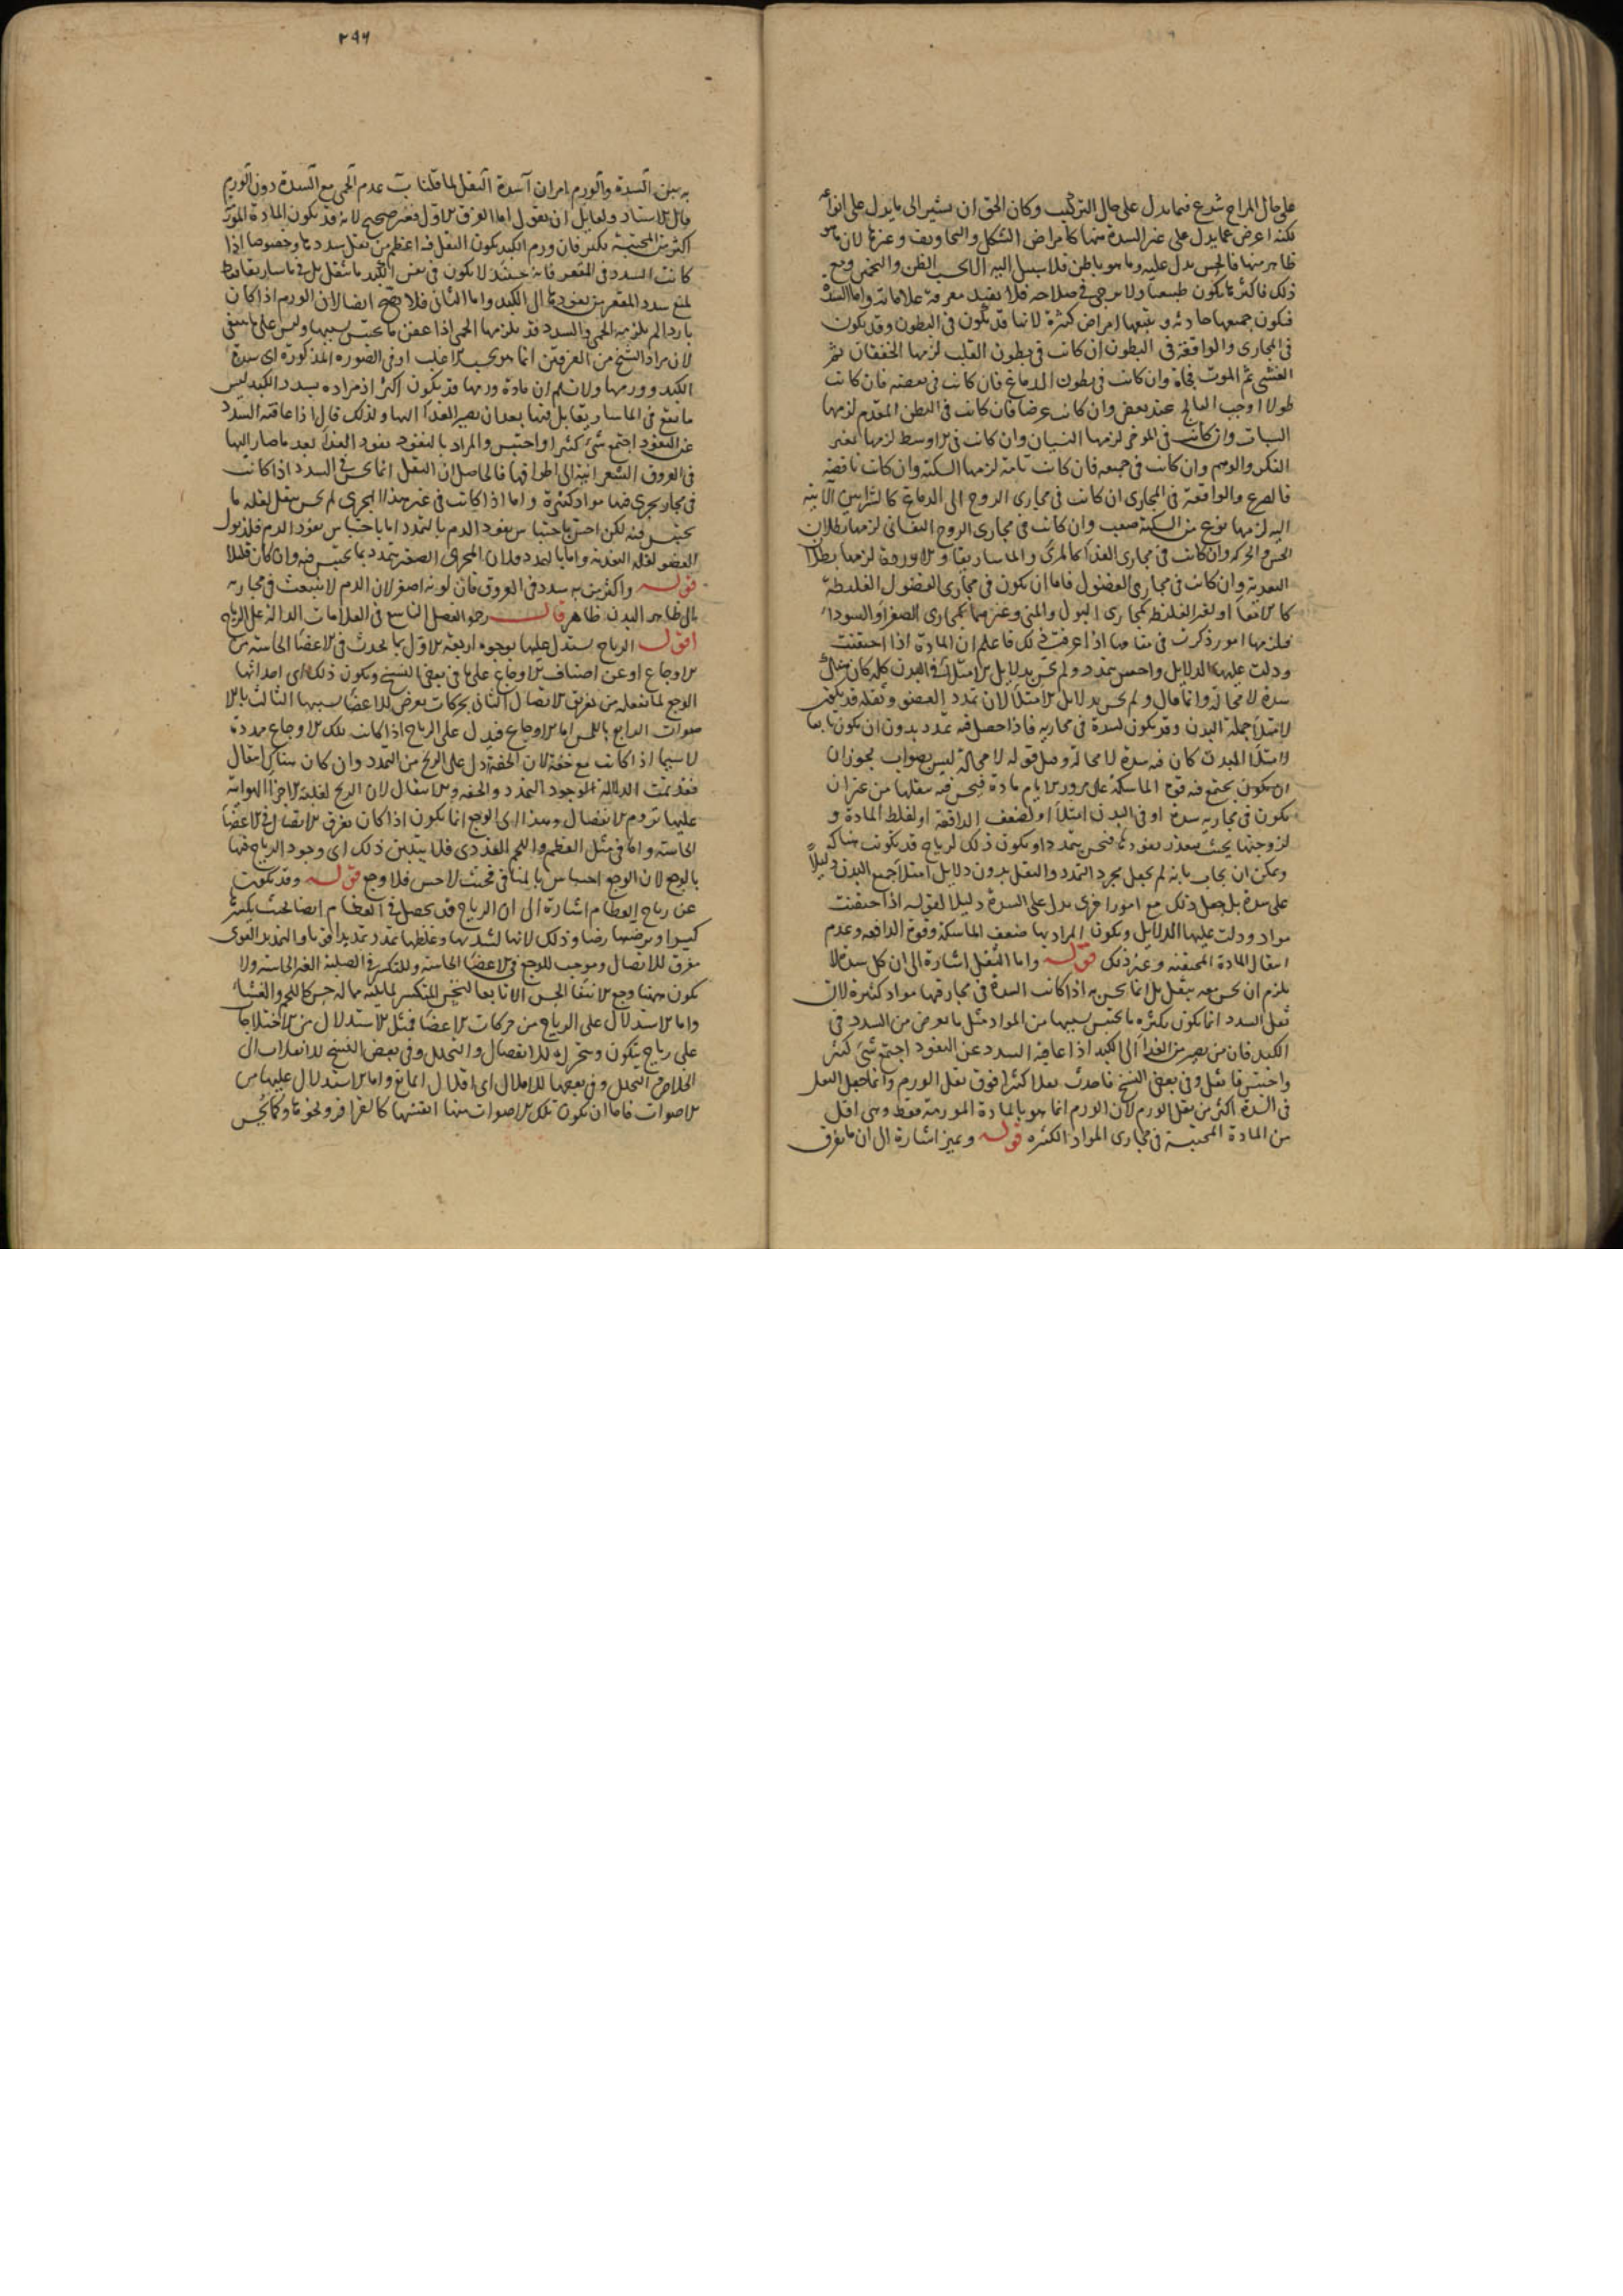 على حال المزاج شرع فيما يدل على حال التركيب وكان الحق ان يشير الى ما يدل على انواعه
لكنه اعرض عما يدل على غير السدة منها كامراض الشكل والتجاويف وغيرها لان ما هو
ظاهر منها فالحس يدل عليه وما هو باطن فلا سبيل اليه الا بحسب الظن والتخمين ومع
ذلك فاكثرها يكون طبيعيا ولا يرجى في صلاحه فلا يفيد معرفة علاماته واما السدة
فيكون جميعها حادثة و يتبعها امراض كثيرة لانها قد تكون في البطون وقد يكون
في المجارى والواقعة في البطون ان كانت في بطون القلب لزمها الخفقان ثم
الغشى ثم الموت فجأة وان كانت في بطون الدماغ فان كانت في بعضه فان كانت
طولا اوجب الفالج عند بعض وان كانت عرضا فان كانت في البطن المقدم لزمها
السبات وان كانت في الموخر لزمها النسيان وان كانت في الاوسط لزمها تغير
الفكر والوهم وان كانت في جميعه فان كانت تامة لزمها السكتة وان كانت ناقصة
فالصرع والواقعة في المجارى ان كانت في مجارى الروح الى الدماغ كالشرايين الآتية
اليه لزمها نوع من السكتة صعب وان كانت في مجارى الروح النفسانى لزمها بطلان
الحس والحركة وان كانت في مجارى الغذا كالمرئ والماساريقا و الاوردة لزمها بطلان
التغذية وان كانت في مجارى الفضول فاما ان يكون في مجارى الفضول الغليظة
كالامعا او لغير الغليظ كمجارى البول والمنى وغيرهما كمجارى الصفرا والسودا
فلزمها امور ذكرت في مقامها اذا عرفت ذلك فاعلم ان المادة اذا احتقنت
ودلت عليها الدلايل واحس بتمدد ولم يحس بدلايل الامتلا في البدن كله كان هناك
سدة لا محالة وانما قال ولم يحس بدلايل الامتلا لان تمدد العضو وثقله قد يكون
لامتلا جملة البدن وقد يكون لسدة في مجاريه فاذا حصل فيه تمدد بدون ان يكون تابعا
لامتلا البدن كان فيه سدة لا محالة وقيل قوله لا محالة ليس بصواب لجواز ان
يكون يجتمع فيه قوة الماسكة على مرور الايام مادة فيحس فيه بثقلها من غير ان
يكون في مجاريه سدة او في البدن امتلأ او لضعف الدافعة او لغلظ المادة و
لزوجتها بحيث يتعذر نفوذها فيحس بتمدد او يكون ذلك لرياح قد تكونت هناك
ويمكن ان يجاب بانه لم يجعل مجرد التمدد والثقل بدون دلايل امتلأ جميع البدن دليلاً
على سدة بل جعل ذلك مع امور اخرى يدل على السدة دليلا لقوله اذا احتقنت
مواد ودلت عليها الدلايل ويكون المراد بها ضعف الماسكة وقوة الدافعة وعدم
انتقال المادة المحتقنة وغير ذلك قوله واما الثقل اشارة الى ان كل سدة لا
يلزم ان يحس معه بثقل بل انما يحس به اذا كانت السدة في مجار فيها مواد كثيرة لان
ثقل السدد انما يكون بكثرة ما يحتبس بسببها من المواد مثل ما يعرض من السدد في
الكبد فان من يصير من الغذا الى الكبد اذا عاقته السدد عن النفوذ اجتمع شئ كثير
واحتبس فاثقل وفي بعض النسخ فاحدث ثقلا كثيرا فوق ثقل الورم وانما جعل الثقل
في السدة اكثر من ثقل الورم لان الورم انما هو بالمادة المورمة فقط وهى اقل
من المادة المحتبسة في مجارى المواد الكثيرة قوله ويميز اشارة الى ان ما يفرق
٢٩٦
به بين السدة والورم امران آ شدة الثقل لما قلنا ب عدم الحمى مع السدة دون الورم
قال الاستاذ ولقايل ان يقول اما الفرق الاول فغير صحيح لانه قد يكون المادة المورمة
اكثر من المحتبسة بكثير فان ورم الكبد يكون الثقل فيه اعظم من ثقل سددها وخصوصا اذا
كانت السدد في المقعر فانه حينئذ لا يكون في نفس الكبد ما يثقل بل في ماساريقا فقط
لمنع سدد المقعر من نفوذها الى الكبد واما الثانى فلا يصح ايضا لان الورم اذا كان
باردا لم يلزمه الحمى والسدد قد يلزمها الحمى اذا عفن ما يحتبس بسببها وليس على ما ينبغى
لان مراد الشيخ من الفرقين انما هو بحسب الاغلب او في الصورة المذكورة اى سدة
الكبد وورمها ولا نسلم ان مادة ورمها قد يكون اكثر اذ مراده بسدد الكبد ليس
ما يقع في الماساريقا بل فيها بعد ان يصير الغذا اليها ولذلك قال اذا عاقته السدد
عن النفوذ اجتمع شئ كثيرا واحتبس والمراد بالنفوذ نفوذ الغذا بعد ما صار اليها
في العروق الشعرانية الى اطرافها فالحاصل ان الثقل انما يحس في السدد اذا كانت
في مجار يجرى فيها مواد كثيرة واما اذا كانت في غير هذا المجرى لم يحس بثقل لقلة ما
يحتبس فيه لكن احس باحتباس نفوذ الدم بالتمدد اما باحتباس نفوذ الدم فلذبول
العضو لقلة التغذية واما بالتمدد فلان المجرى الصغير يتمدد بما يحتبس فيه وان كان قليلا
قوله واكثر من به سدد في العروق فان لونه اصفر لان الدم لا ينبعث في مجاريه
الى ظاهر البدن ظاهر قال رحمه الفصل التاسع في العلامات الدالة على الرياح
اقول الرياح يستدل عليها بوجوه اربعة الاول بما يحدث في الاعضا الحاسة من
الاوجاع او عن اصناف الاوجاع على ما في بعض النسخ ويكون ذلك اى احداثها
الوجع لما تفعله من تفرق الاتصال الثانى بحركات يعرض للاعضا بسببها الثالث بالا
صوات الرابع باللمس اما الاوجاع فيدل على الرياح اذا كانت تلك الاوجاع ممددة
لاسيما اذا كانت مع خفة لان الخفة دل على الريح من التمدد وان كان هناك انتقال
فقد تمت الدلالة لوجود التمدد والخفة والانتقال لان الريح لغلبة الاجزا الهوائية
عليها تروم الانفصال وهذا اى الوجع انما يكون اذا كان تفرق الاتصال في الاعضا
الحاسة واما في مثل العظم واللحم الغددى فلا يتبين ذلك اى وجود الرياح فيها
بالوجع لان الوجع احساس بالمنافى فحيث لا حس فلا وجع قوله وقد يكون
عن رياح العظام اشارة الى ان الرياح قد يحصل في العظام ايضا بحيث يكسر
كسرا ويرضها رضا وذلك لانها لشدتها وغلظها تمدد تمديدا قويا والتمديد القوى
مفرق للاتصال وموجب للوجع في الاعضا الحاسة وللتكسر في الصلبة الغير الحاسة ولا
يكون هنا وجع لانتفا الحس الا تابعا لنخس المنكسر لما يليه مما له حس كاللحم والغشا
واما الاستدلال على الرياح من حركات الاعضا فمثل الاستدلال من الاختلاجات
على رياح يتكون ويتحرك للانفصال والتحلل وفي بعض النسخ للانقلاب الى
الخلاص والتحلل وفي بعضها للاقلال اى اقلال المانع واما الاستدلال عليها من
الاصوات فاما ان يكون تلك الاصوات منها انفسها كالقراقر ونحوها وكما يحس